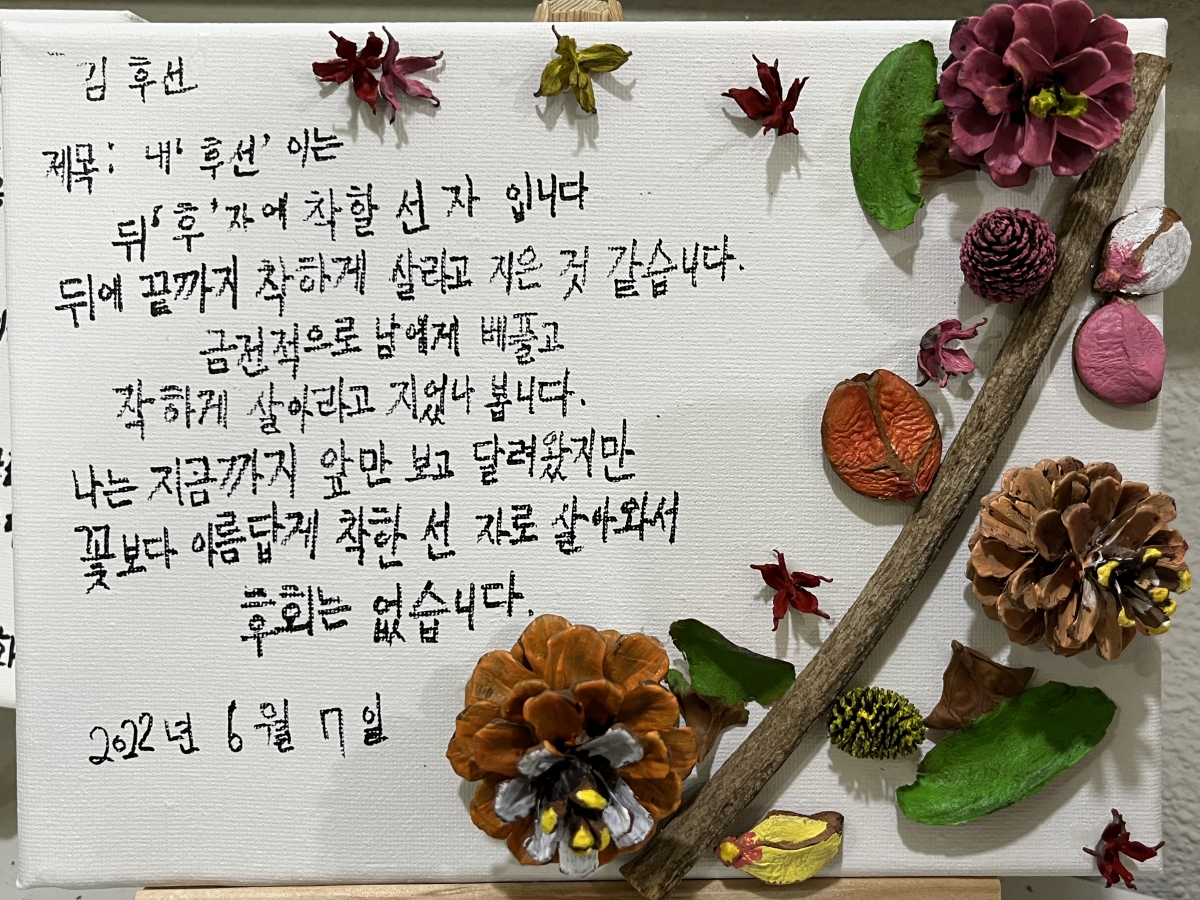 김 후선
제목: 내 '후선' 이는
뒤 '후' 자에 착할 선 자 입니다
뒤에 끝까지 착하게 살라고 지은 것 같습니다.
금전적으로 남에게 베풀고
착하게 살아라고 지었나 봅니다.
나는 지금까지 앞만 보고 달려왔지만
꽃보다 아름답게 착한 선 자로 살아와서
후회는 없습니다.
2022년 6월 7일